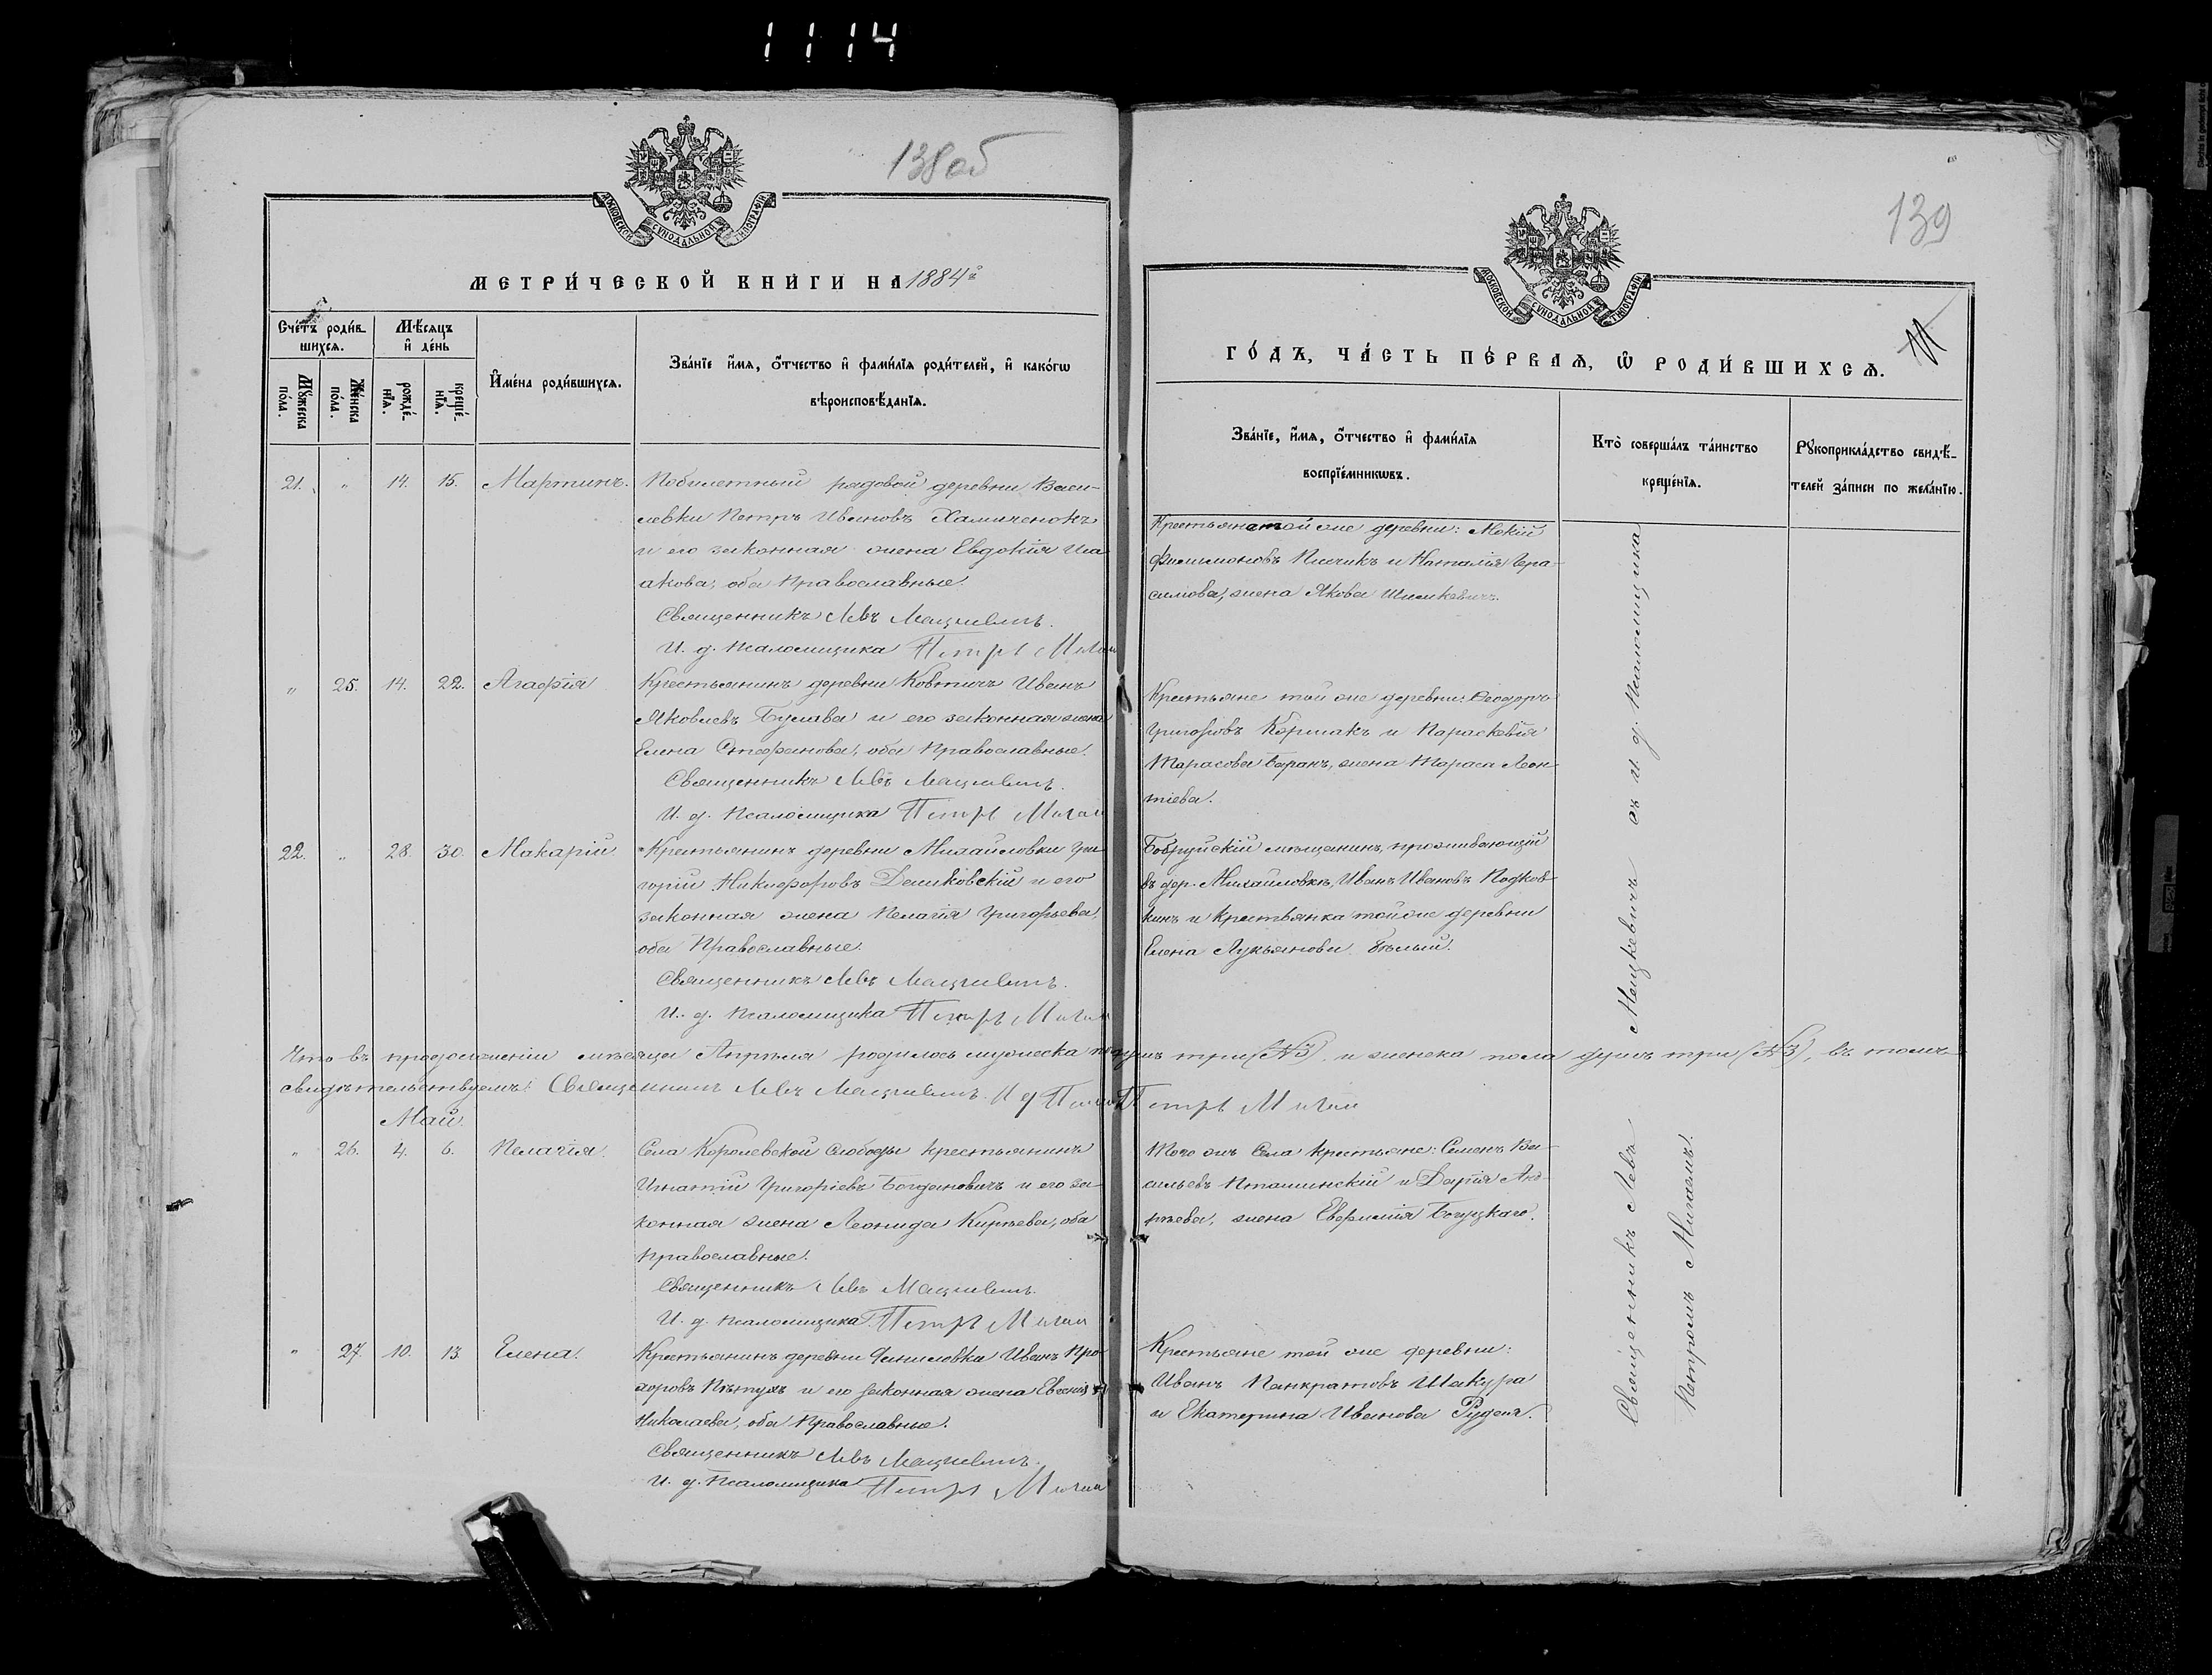 1114
138об
МОСКОВСКОЙ СѴНОДАЛЬНОЙ ТИПОГРАФІИ
МЕТРИ́ЧЕСКОЙ КНИ́ГИ НА 1884й
Сче́тъ роди́вшихсѧ.
Мꙋ́жеска по́ла.
Же́нска по́ла.
Мѣ́сѧцъ и҆ де́нь
рожде́нїѧ.
креще́нїѧ.
И҆мена̀ роди́вшихсѧ.
Зва́нїе и҆́мѧ, ѻ҆́тчество и҆ фами́лїѧ роди́телей, и҆ како́гѡ
вѣроисповѣ́данїѧ.
21. " 14. 15. Мартинъ. Побилетный рядовой деревни Васи-
левки Петръ Ивановъ Хамиченокъ
и его законная жена Евдокія Иса
акова, оба Православные.
Священникъ Левъ Мацкевичъ.
И. д. Псаломщика Петръ Мигай
" 25. 14. 22. Агафія Крестьянинъ деревни Ковтичъ Иванъ
Яковлевъ Булава и его законная жена
Елена Стефанова, оба Православные.
Священникъ Левъ Мацкевичъ.
И. д. Псаломщика Петръ Мигай
22. " 28. 30. Макарій Крестьянинъ деревни Михайловки Гри-
горій Никифоровъ Демковскій и его
законная жена Пелагія Григорьева,
оба Православные.
Священникъ Левъ Мацкевичъ.
И. д. Псаломщика Петръ Мигай
Что въ продолженіи мѣсяца Апрѣля родилось мужеска пола душъ три (№3) и женска пола душъ три (№3), въ томъ
свидѣтельствуемъ: Священникъ Левъ Мацкевичъ. И д Петръ Мигай
Май.
" 26. 4. 6. Пелагія. Села Королевской Слободы крестьянинъ
Игнатій Григоріевъ Богдановичъ и его за-
конная жена Леонида Кирѣева, оба
Православные.
Священникъ Левъ Мацкевичъ.
И. д. Псаломщика Петръ Мигай
" 27. 10. 13. Елена. Крестьянинъ деревни Чипиловка Иванъ Про-
хоровъ Пѣтухъ и его законная жена Евгенія
Николаева, оба Православные.
Священникъ Левъ Мацкевичъ.
И. д. Псаломщика Петръ Мигай
139
МОСКОВСКОЙ СѴНОДАЛЬНОЙ ТИПОГРАФІИ
ГО́ДЪ, ЧА́СТЬ ПЕ́РВАѦ, Ѡ҆ РОДИ́ВШИХСѦ.
Зва́нїе, и҆́мѧ, ѻ҆́тчество и҆ фами́лїѧ
воспрїе́мникѡвъ.
Кто̀ соверша́лъ та́инство
креще́нїѧ.
Рꙋкоприкла́дство свидѣ́-
телей за́писи по жела́нїю.
Крестьяне той же деревни: Мокій
Филимоновъ Пинчикъ и Наталія Гера-
симова, жена Якова Шимкевича.
Крестьяне той же деревни: Ѳеодоръ
Григорьовъ Коршакъ и Параскевія
Тарасова Баранъ, жена Тараса Леон-
тіева.
Бобруйскій мѣщанинъ, проживающій
въ дер. Михайловкѣ, Иванъ Ивановъ Подков-
кинъ и крестьянка той же деревни
Елена Лукьянова Бѣлый.
Того жъ села крестьяне: Семенъ Ва-
сильевъ Пташинскій и Дарія Анд-
рѣева, жена Евфимія Богуцкаго.
Крестьяне той же деревни:
Иванъ Панкратовъ Шакура
и Екатерина Иванова Рудая.
Священникъ Левъ Мацкевичъ съ и. д. Псаломщика
Петромъ Мигаемъ.